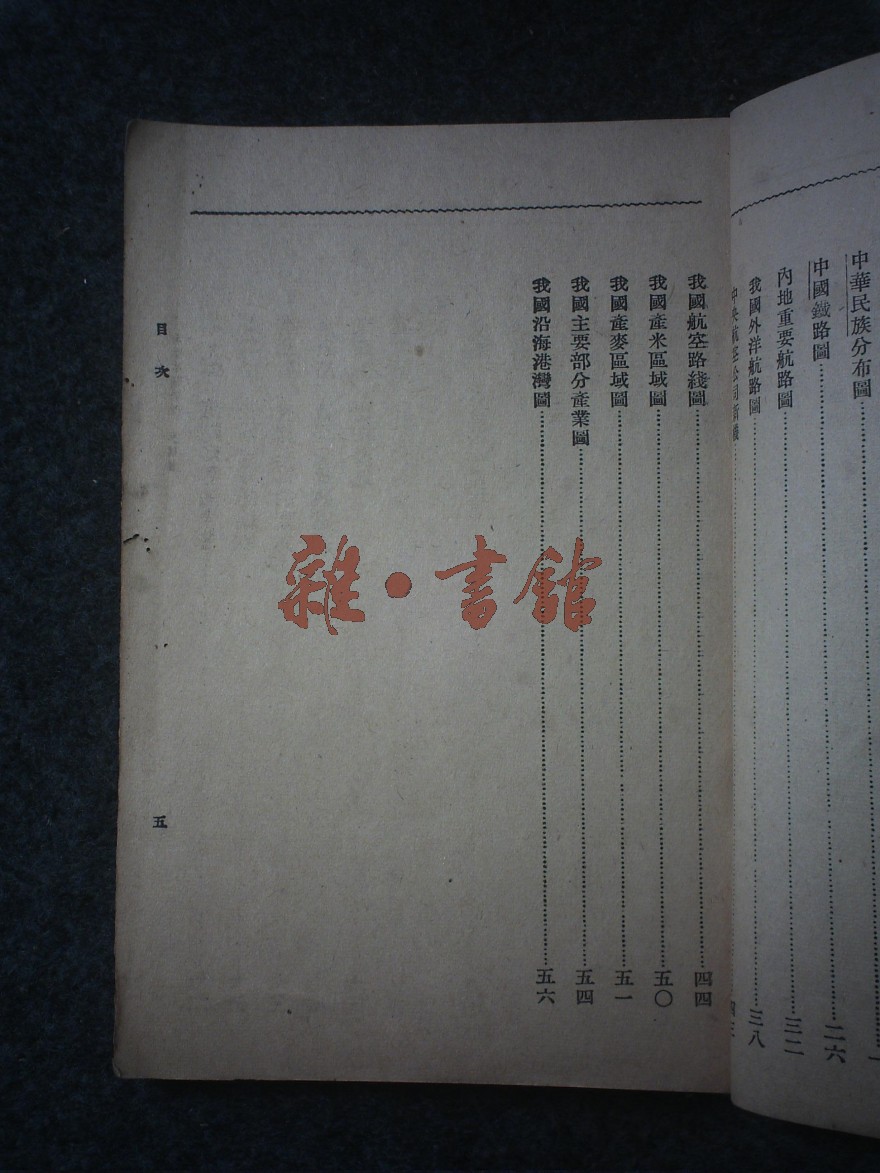 中華民族分布圖
中國鐵路圖……二六
內地重要航路圖……三二
我國外洋航路圖……三八
中央航空公司
我國航空路綫圖……四四
我國產米區域圖……五〇
我國產麥區域圖……五一
我國主要部分產業圖……五四
我國沿海港灣圖……五六
目次
五
雜·書館